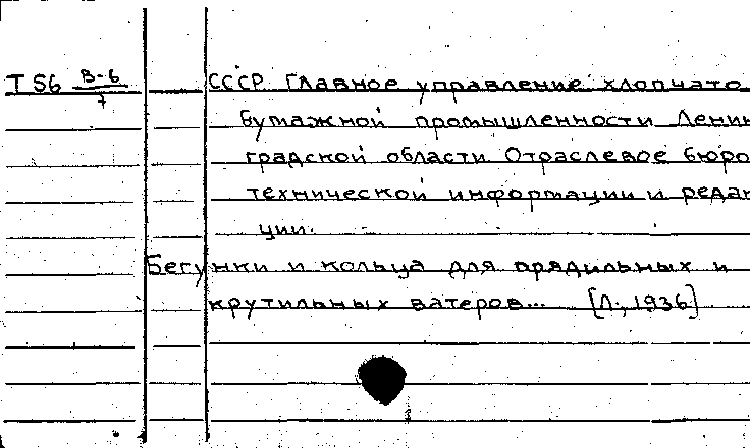 T 56 В-6/7 СССР Главное управление хлопчато
бумажной промышленности Ленин
градской области Отраслевое бюро
технической информации и редак
ции.
Бегунки и кольца для прядильных и
крутильных ватеров... [Л., 1936]